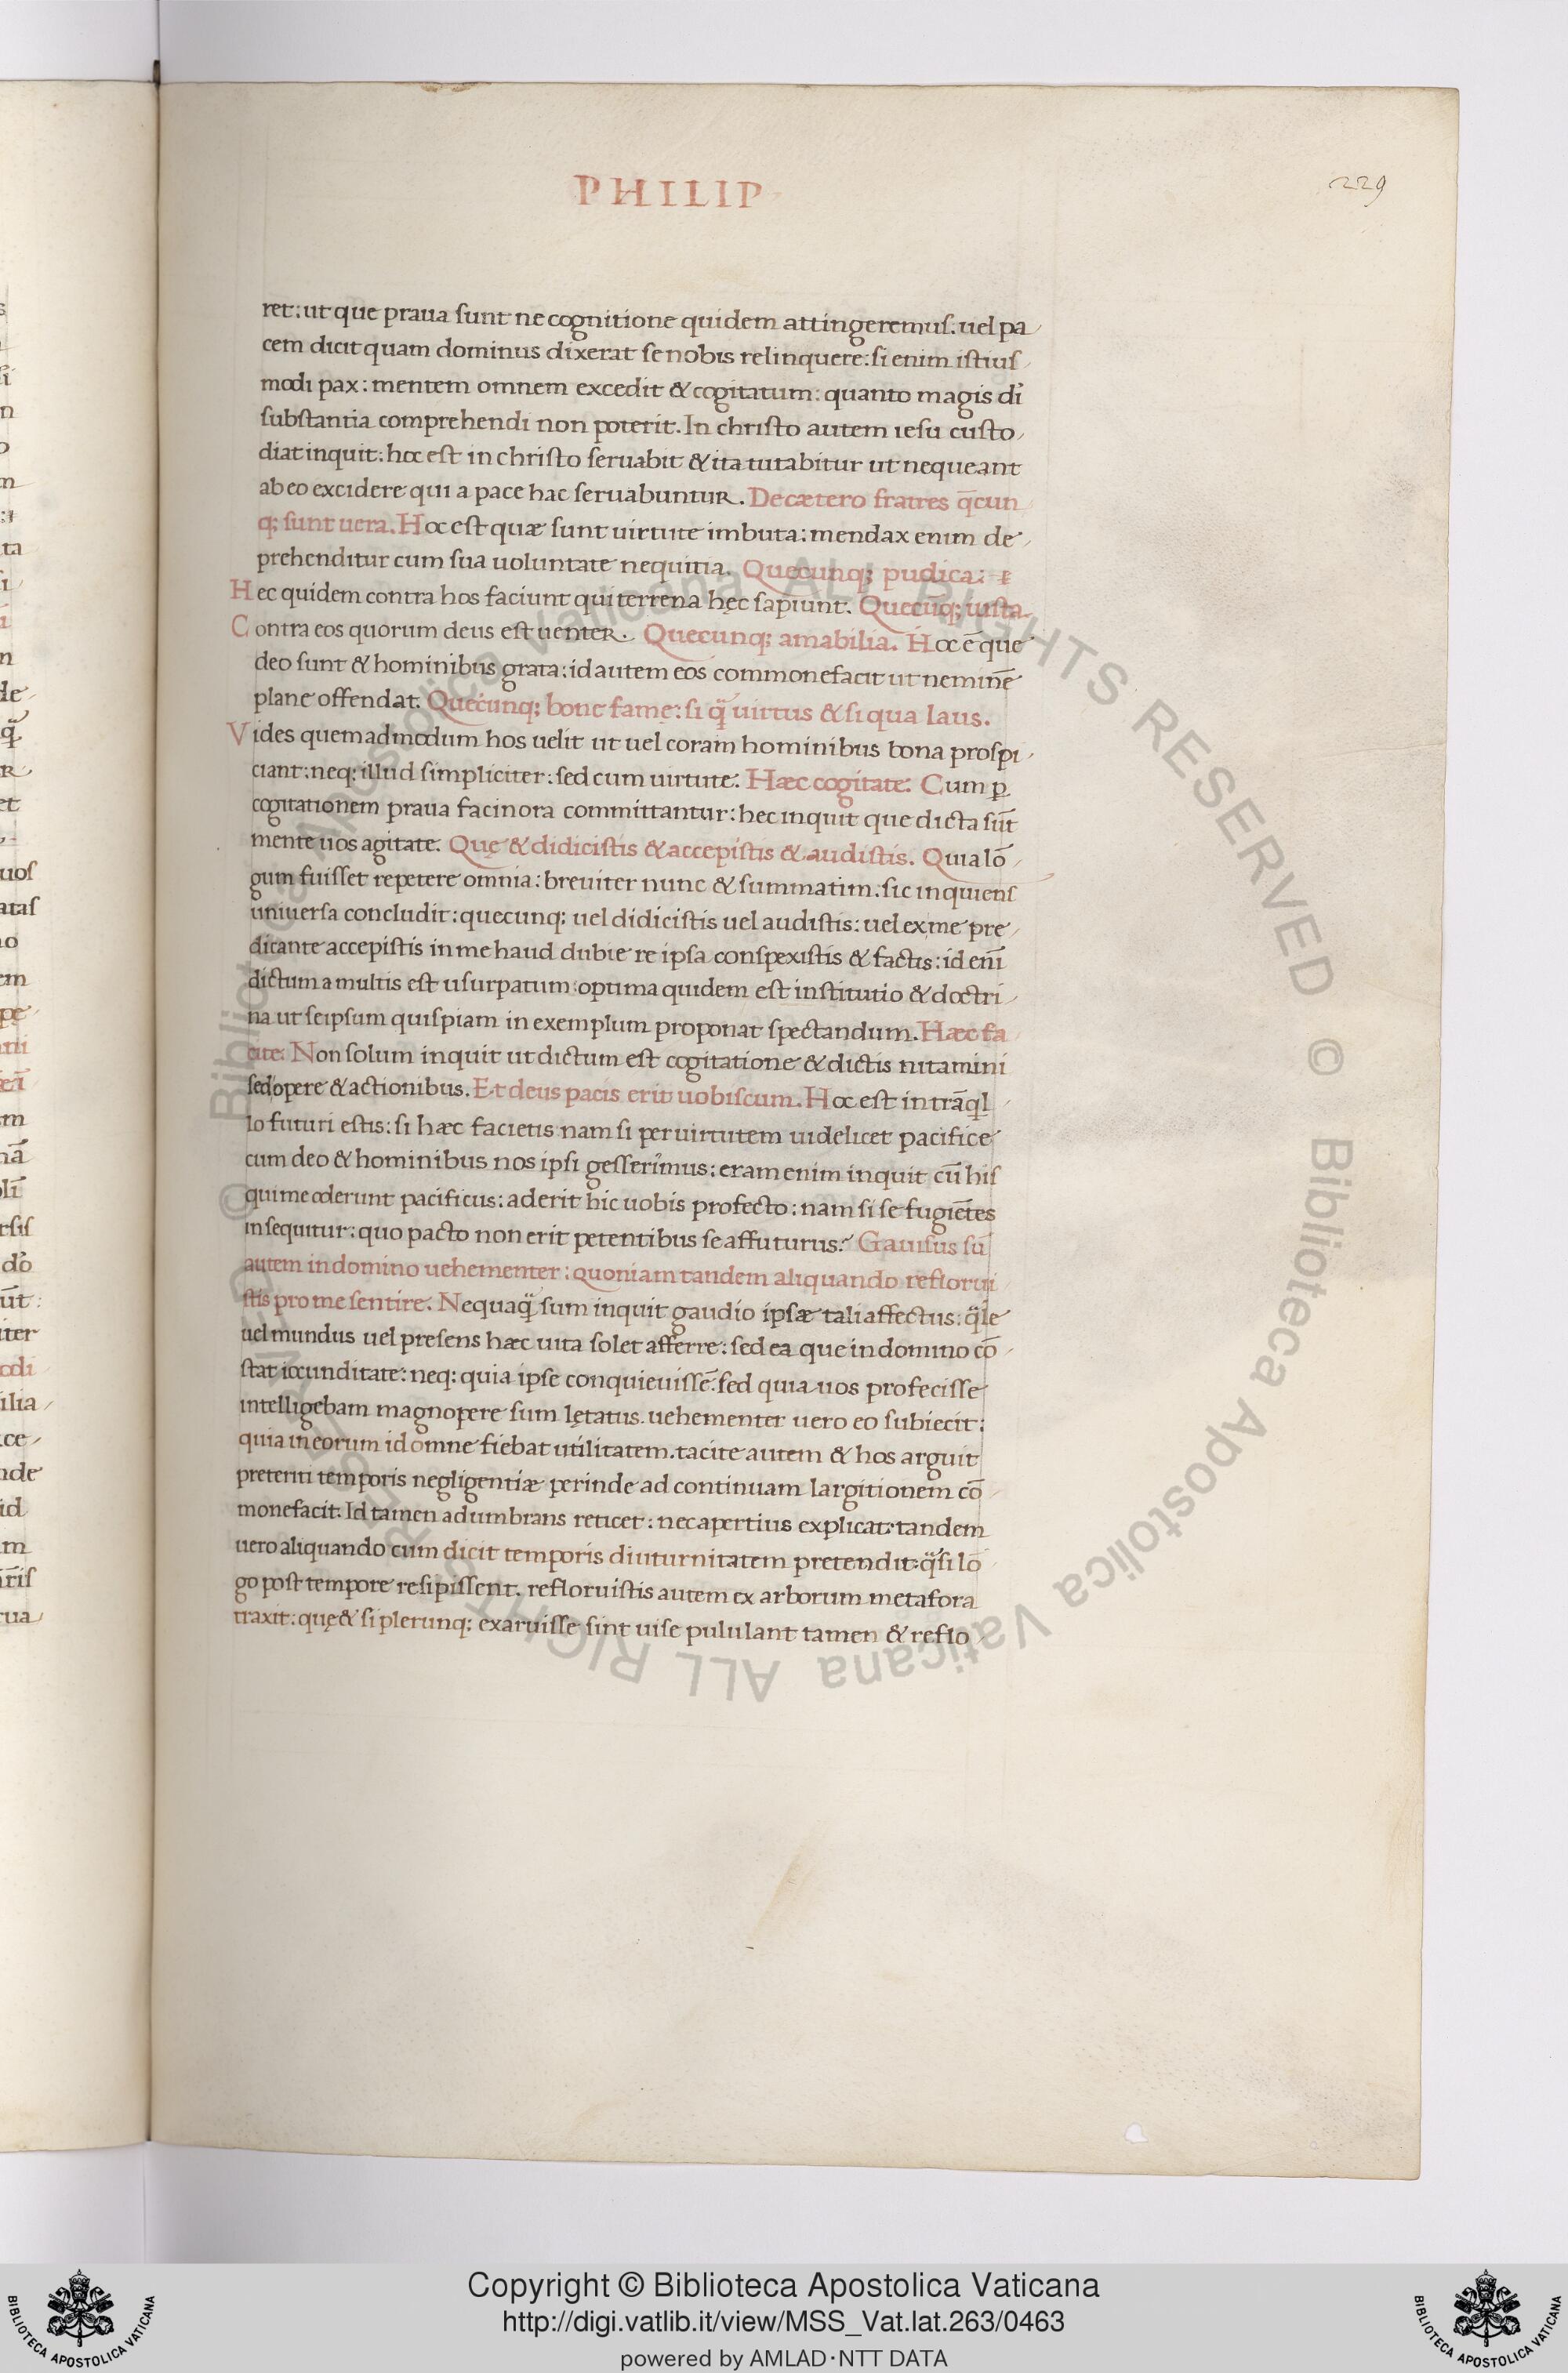 PHILIP
229
ret: ut que praua sunt ne cognitione quidem attingeremus. uel pa
cem dicit quam dominus dixerat se nobis relinquere: si enim istius
modi pax: mentem omnem excedit & cogitatum: quanto magis di᷉
substantia comprehendi non poterit. In christo autem iesu custo
diat inquit: hoc est in christo seruabit & ita tutabitur ut nequeant
ab eo excidere qui a pace hac seruabuntur. De cætero fratres q̄cun
q; sunt uera. Hoc est quæ sunt uirtute imbuta: mendax enim de
prehenditur cum sua uoluntate nequitia. Quecunq; pudica:
Hec quidem contra hos faciunt qui terrena hęc sapiunt. Quecūq; iusta
Contra eos quorum deus est uenter. Quecunq; amabilia. Hoc ē que
deo sunt & hominibus grata: id autem eos commonefacit ut neminē
plane offendat. Quecunq; bone famę: si q̃ uirtus & si qua laus.
Vides quemadmodum hos uelit ut uel coram hominibus bona prospi
ciant: neq; illud simpliciter: sed cum uirtute. Hæc cogitate. Cum ꝑ
cogitationem praua facinora committantur: hec inquit que dicta sūt
mente uos agitate. Quę & didicistis & accepistis & audistis. Quia lō
gum fuisset repetere omnia: breuiter nunc & summatim: sic inquiens
uniuersa concludit: quecunq; uel didicistis uel audistis: uel ex me pre
dicante accepistis in me haud dubie re ipsa conspexistis & factis: id enī
dictum a multis est usurpatum: optima quidem est institutio & doctri
na ut seipsum quispiam in exemplum proponat spectandum. Hæc fa
cite. Non solum inquit ut dictum est cogitatione & dictis nitamini
sed opere & actionibus. Et deus pacis erit uobiscum. Hoc est in trāql
lo futuri estis: si hæc facietis nam si per uirtutem uidelicet pacifice
cum deo & hominibus nos ipsi gesserimus: eram enim inquit cū his
qui me oderunt pacificus: aderit hic uobis profecto: nam si se fugiētes
insequitur: quo pacto non erit petentibus se affuturus? Gauisus sū
autem in domino uehementer: quoniam tandem aliquando reflorui
stis pro me sentire. Nequaq̃ sum inquit gaudio ipsæ tali affectus: q̃le
uel mundus uel presens hæc uita solet afferre: sed ea que in domino cō
stat iocunditate: neq; quia ipse conquieuissē: sed quia uos profecisse
intelligebam magnopere sum lętatus. uehementer uero eo subiecit:
quia in eorum id omne fiebat utilitatem. tacite autem & hos arguit
preteriti temporis negligentiæ perinde ad continuam largitionem cō
monefacit. Id tamen adumbrans reticet: nec apertius explicat: tandem
uero aliquando cum dicit temporis diuturnitatem pretendit: q̃si lō
go post tempore resipissent. refloruistis autem ex arborum metafora
traxit: quę & si plerunq; exaruisse sint uise pululant tamen & reflo
© Biblioteca Apostolica Vaticana ALL RIGHTS RESERVED © Biblioteca Apostolica Vaticana ALL RIGHTS RESERVED
Copyright © Biblioteca Apostolica Vaticana
http://digi.vatlib.it/view/MSS_Vat.lat.263/0463
powered by AMLAD·NTT DATA
BIBLIOTECA APOSTOLICA VATICANA
BIBLIOTECA APOSTOLICA VATICANA